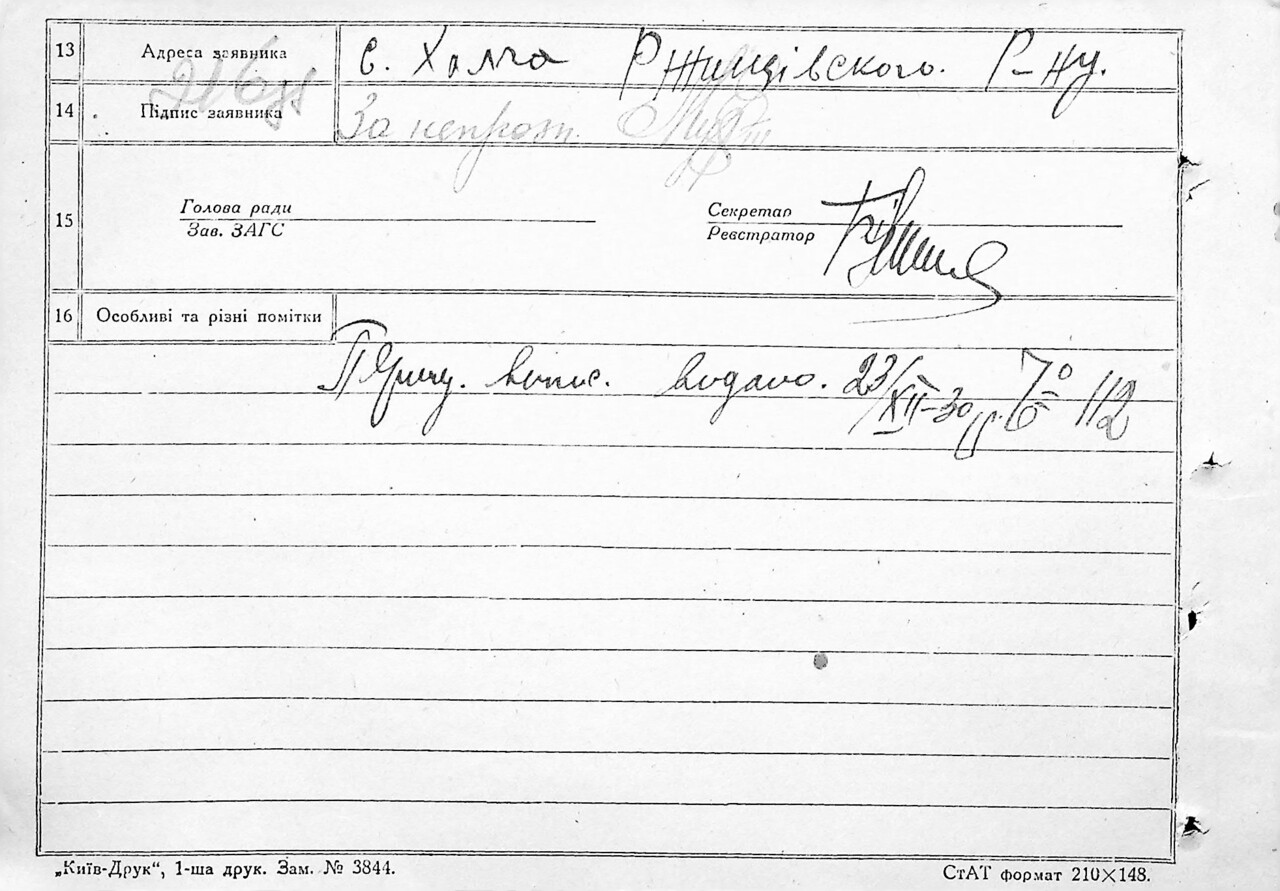 13 Адреса заявника с. Халча Ржищівського. Р-ну.
14 Підпис заявника За неграм.
Голова ради Секретар
15
Зав. ЗАГС Реєстратор
16 Особливі та різні помітки
випис. видано. 23/XII-30 р. № 112
„Київ-Друк“, 1-ша друк. Зам. № 3844. СтАТ формат 210×148.